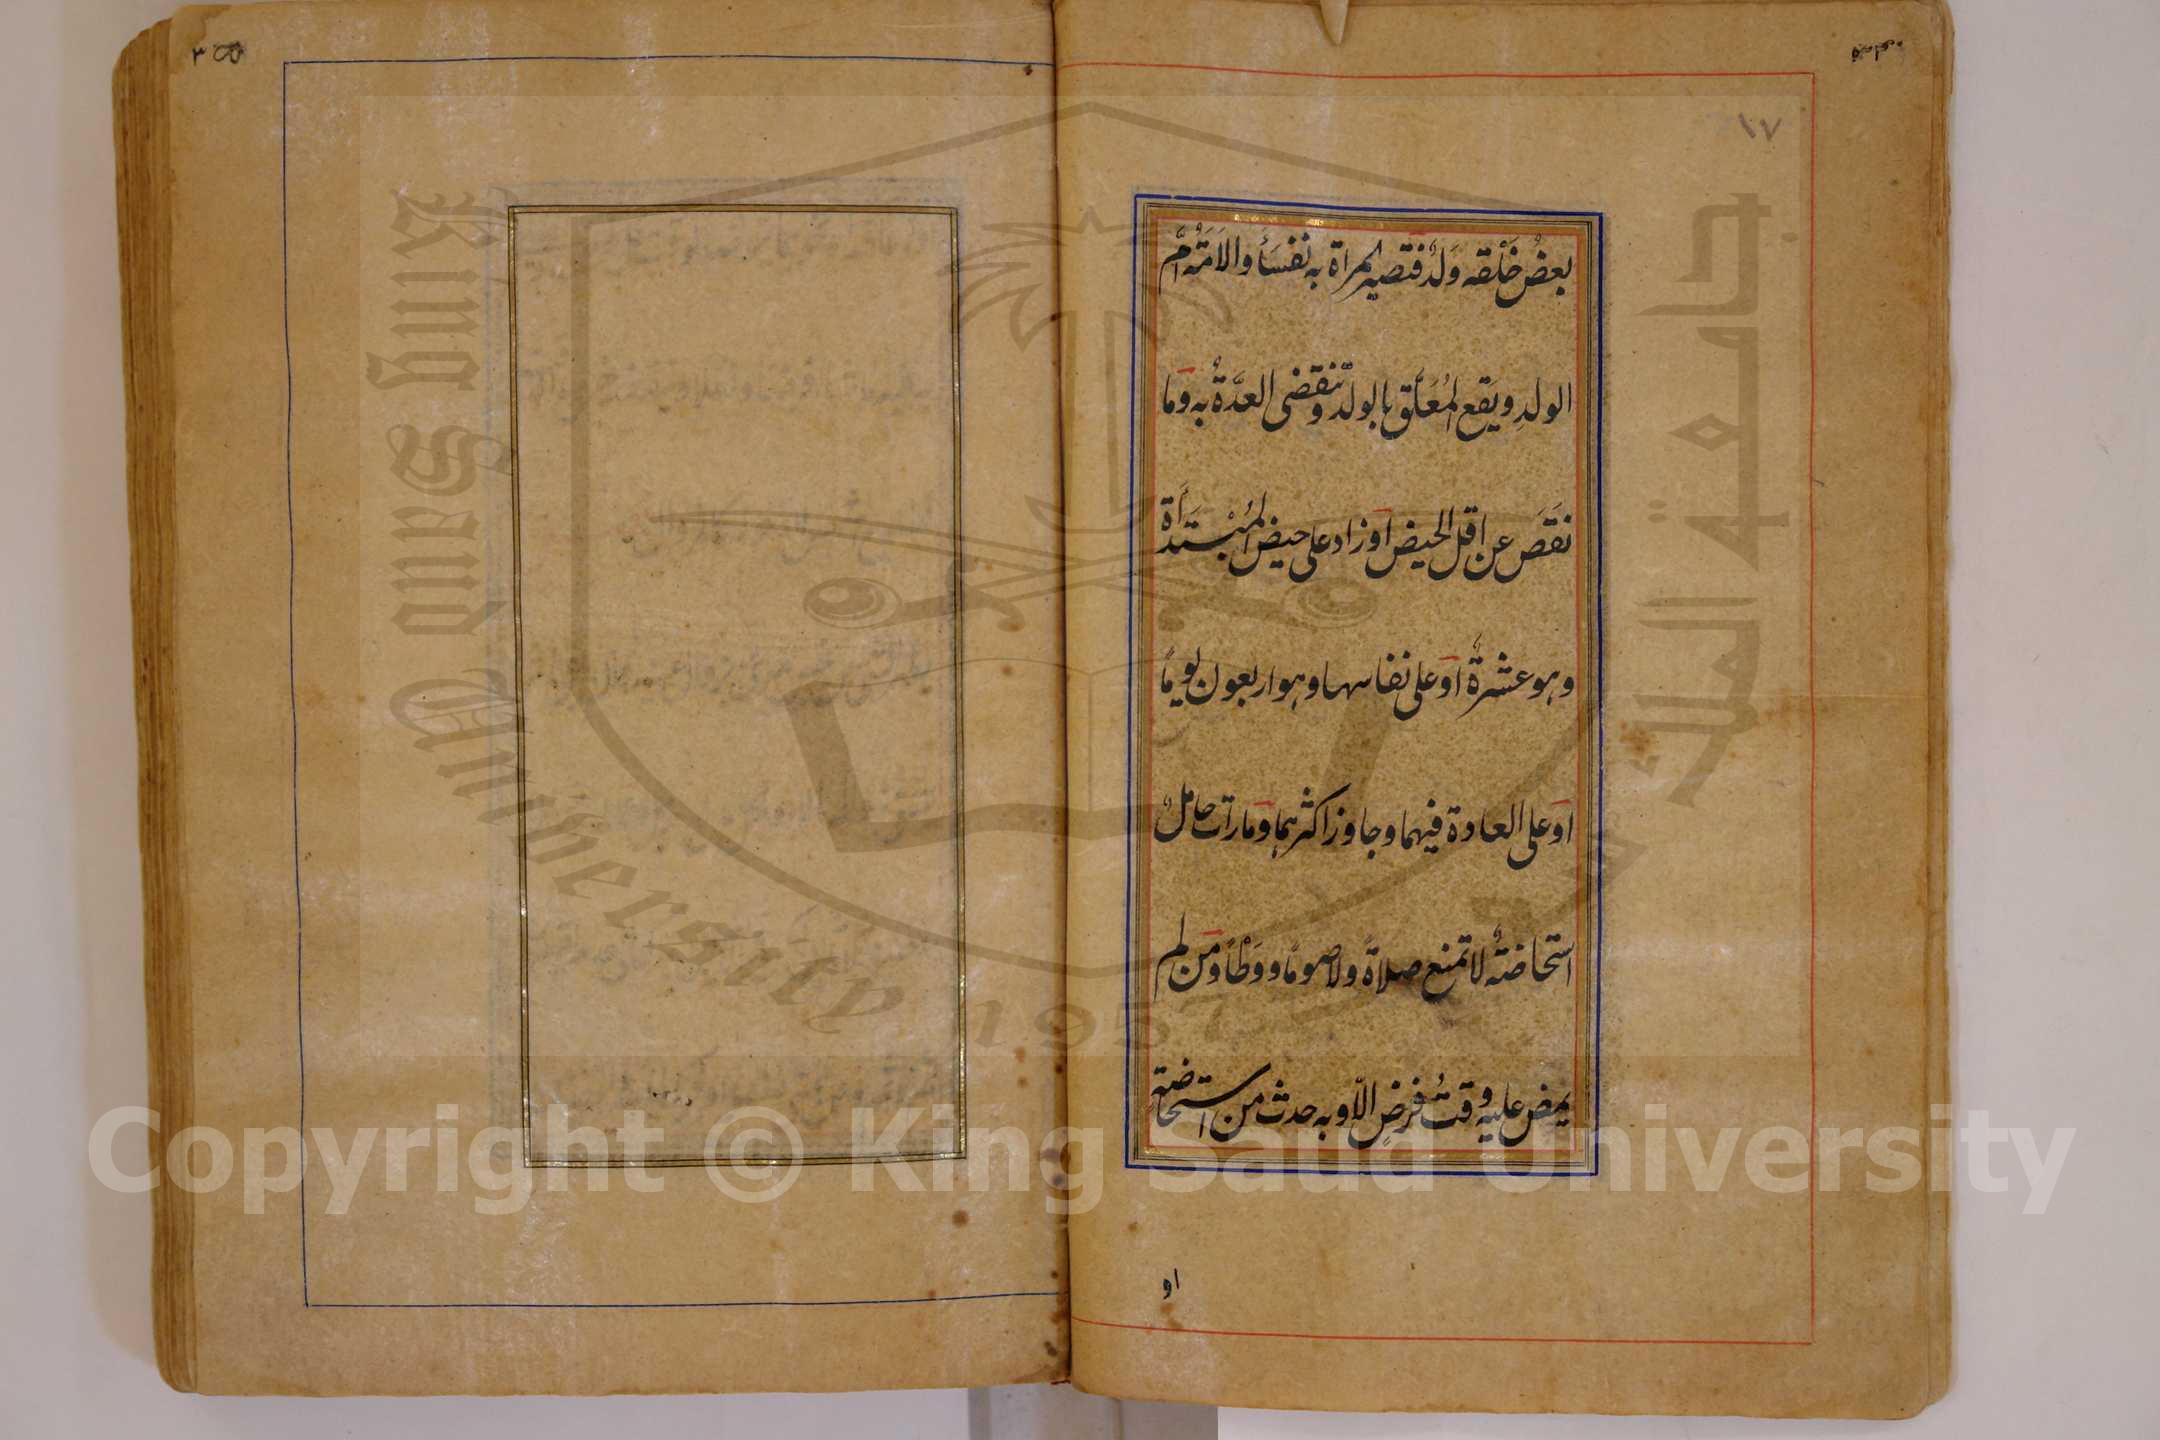 ١٧
بعضُ خَلْقه وَلَدٌ فتصير المراة به نفسَأَ والاَمَةُ اُمَّ
الولدِ ويَقع المُعَلَّق بالولد وتنقضى العدَّةُ به وَما
نَقَصَ عن اقل الحيض اَوزاد على حيض المُبْتَدَأة
وهو عشرةٌ اَوعلى نفاسها وهو اربعون يوماً
اَوعلى العادة فيهما وجاوز اكثرهما وَمارات حاملٌ
استحاضتهٌ لاتمنع صلاةً ولاصوماً ووَطْأً وَمَن لم
يمض عليه وقتُ فرضٍ الّا وبه حدث من استحاضةٍ
او
King Saud University
1957
جامعة الملك سعود
Copyright © King Saud University